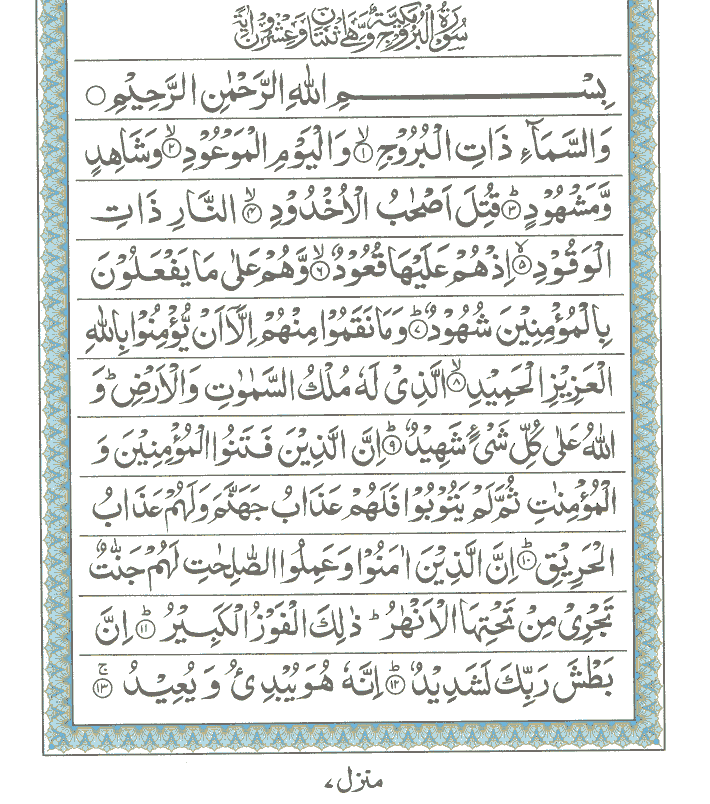 سُوْرَةُ الْبُرُوْجِ مَكِّيَّةٌ وَّهِيَ ثِنْتَانِ وَعِشْرُوْنَ اٰيَةً
بِسْمِ اللّٰهِ الرَّحْمٰنِ الرَّحِيْمِ ○
وَالسَّمَآءِ ذَاتِ الْبُرُوْجِ ۙ﴿۱﴾ وَالْيَوْمِ الْمَوْعُوْدِ ۙ﴿۲﴾ وَشَاهِدٍ
وَّمَشْهُوْدٍ ؕ﴿۳﴾ قُتِلَ اَصْحٰبُ الْاُخْدُوْدِ ۙ﴿۴﴾ النَّارِ ذَاتِ
الْوَقُوْدِ ۙ﴿۵﴾ اِذْ هُمْ عَلَيْهَا قُعُوْدٌ ۙ﴿۶﴾ وَّهُمْ عَلٰى مَا يَفْعَلُوْنَ
بِالْمُؤْمِنِيْنَ شُهُوْدٌ ؕ﴿۷﴾ وَمَا نَقَمُوْا مِنْهُمْ اِلَّاۤ اَنْ يُّؤْمِنُوْا بِاللّٰهِ
الْعَزِيْزِ الْحَمِيْدِ ۙ﴿۸﴾ الَّذِىْ لَهٗ مُلْكُ السَّمٰوٰتِ وَالْاَرْضِ ؕ وَ
اللّٰهُ عَلٰى كُلِّ شَىْءٍ شَهِيْدٌ ؕ﴿۹﴾ اِنَّ الَّذِيْنَ فَتَنُوا الْمُؤْمِنِيْنَ وَ
الْمُؤْمِنٰتِ ثُمَّ لَمْ يَتُوْبُوْا فَلَهُمْ عَذَابُ جَهَنَّمَ وَلَهُمْ عَذَابُ
الْحَرِيْقِ ؕ﴿۱۰﴾ اِنَّ الَّذِيْنَ اٰمَنُوْا وَعَمِلُوا الصّٰلِحٰتِ لَهُمْ جَنّٰتٌ
تَجْرِىْ مِنْ تَحْتِهَا الْاَنْهٰرُ ؕ ذٰلِكَ الْفَوْزُ الْكَبِيْرُ ؕ﴿۱۱﴾ اِنَّ
بَطْشَ رَبِّكَ لَشَدِيْدٌ ؕ﴿۱۲﴾ اِنَّهٗ هُوَ يُبْدِئُ وَيُعِيْدُ ۚ﴿۱۳﴾
منزل ۷